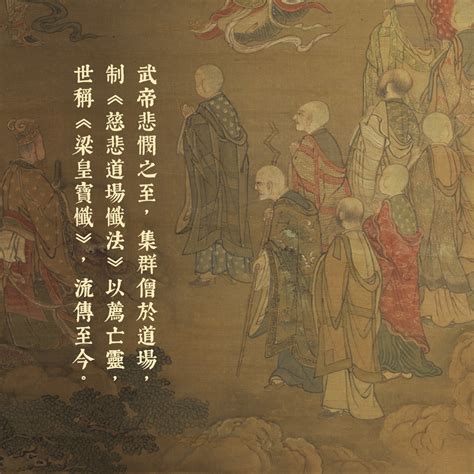 武帝悲憫之至，集群僧於道場，
制《慈悲道場懺法》以薦亡靈，
世稱《梁皇寶懺》，流傳至今。